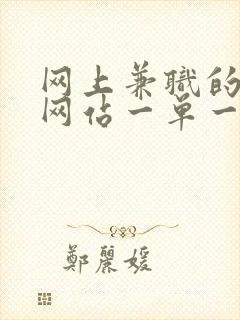 网上兼職的
网估一单一
鄭麗媛